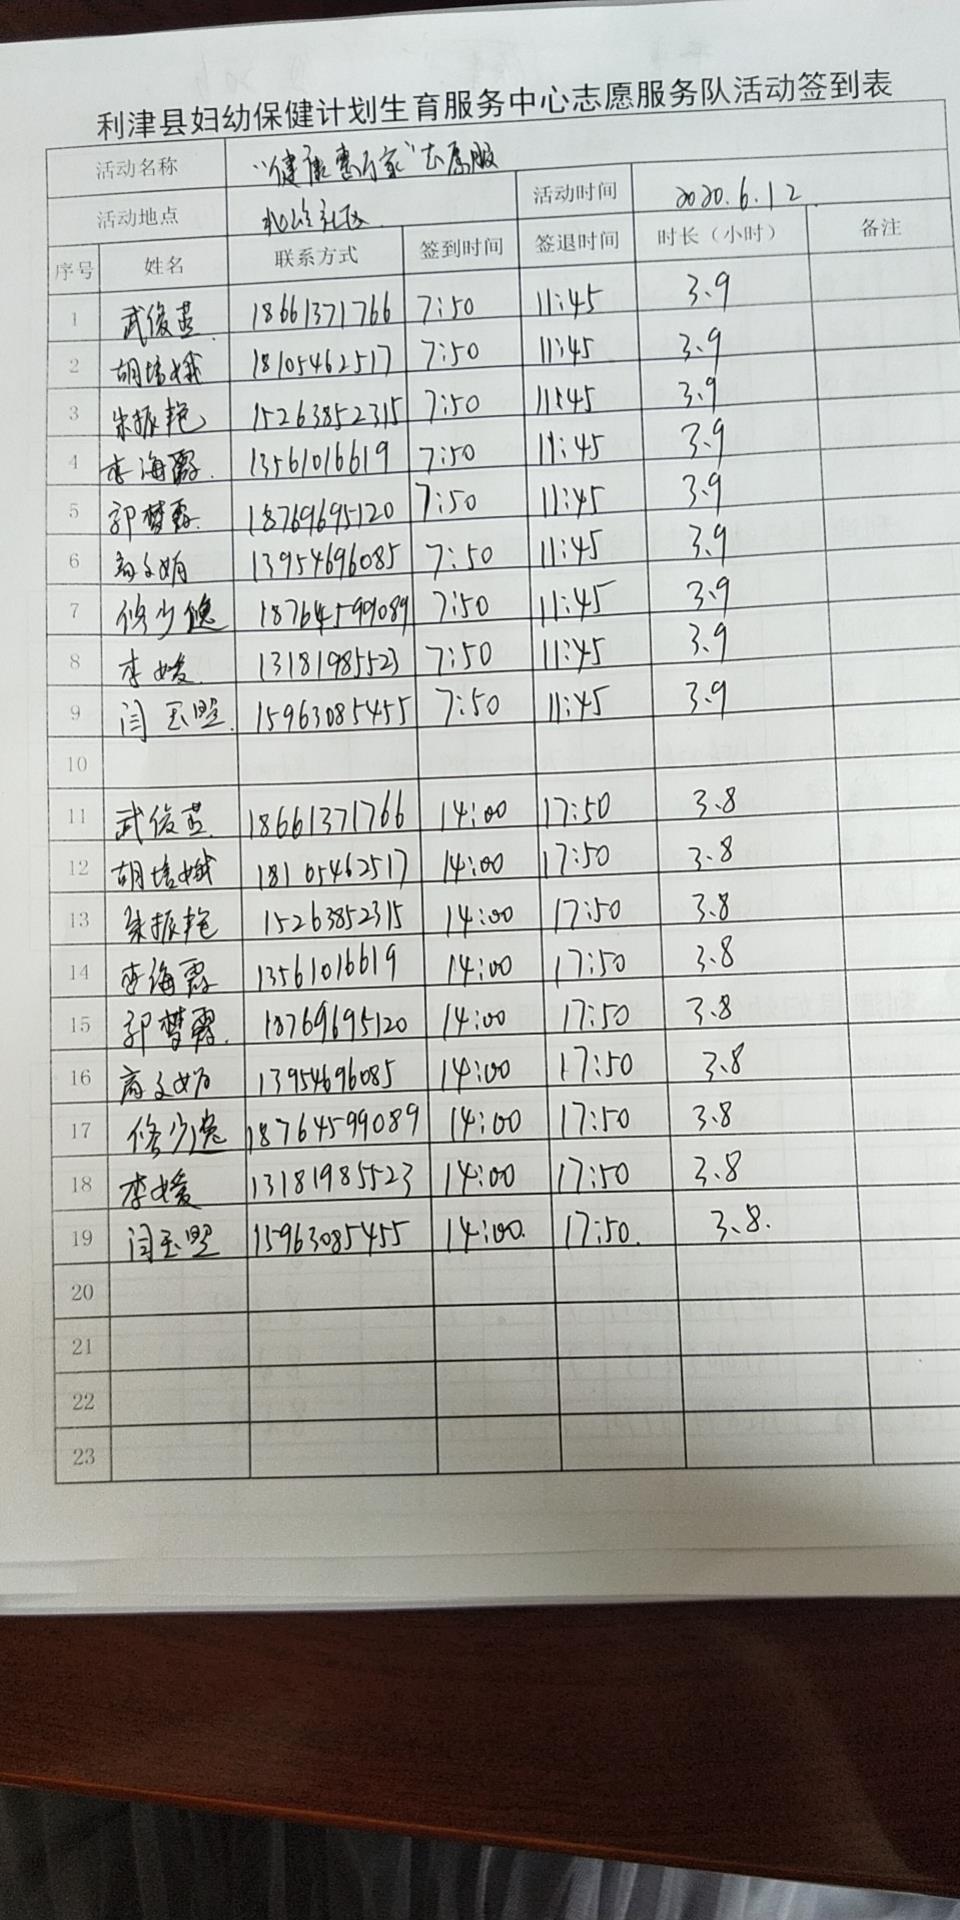 利津县妇幼保健计划生育服务中心志愿服务队活动签到表
活动名称 "健康惠万家"志愿服
活动地点 社区 活动时间 2020.6.12.
序号 姓名 联系方式 签到时间 签退时间 时长（小时） 备注
1 武俊燕 18661371766 7:50 11:45 3.9
2 胡培娥 18105462517 7:50 11:45 3.9
3 朱振艳 15263852315 7:50 11:45 3.9
4 李海霞 13561016619 7:50 11:45 3.9
5 郭梦霞 18769695120 7:50 11:45 3.9
6 文娟 13954696085 7:50 11:45 3.9
7 修少 18764599089 7:50 11:45 3.9
8 李媛 13181985523 7:50 11:45 3.9
9 闫玉 15963085455 7:50 11:45 3.9
10
11 武俊燕 18661371766 14:00 17:50 3.8
12 胡培娥 18105462517 14:00 17:50 3.8
13 朱振艳 15263852315 14:00 17:50 3.8
14 李海霞 13561016619 14:00 17:50 3.8
15 郭梦霞 18769695120 14:00 17:50 3.8
16 文娟 13954696085 14:00 17:50 3.8
17 修少 18764599089 14:00 17:50 3.8
18 李媛 13181985523 14:00 17:50 3.8
19 闫玉 15963085455 14:00. 17:50. 3.8.
20
21
22
23